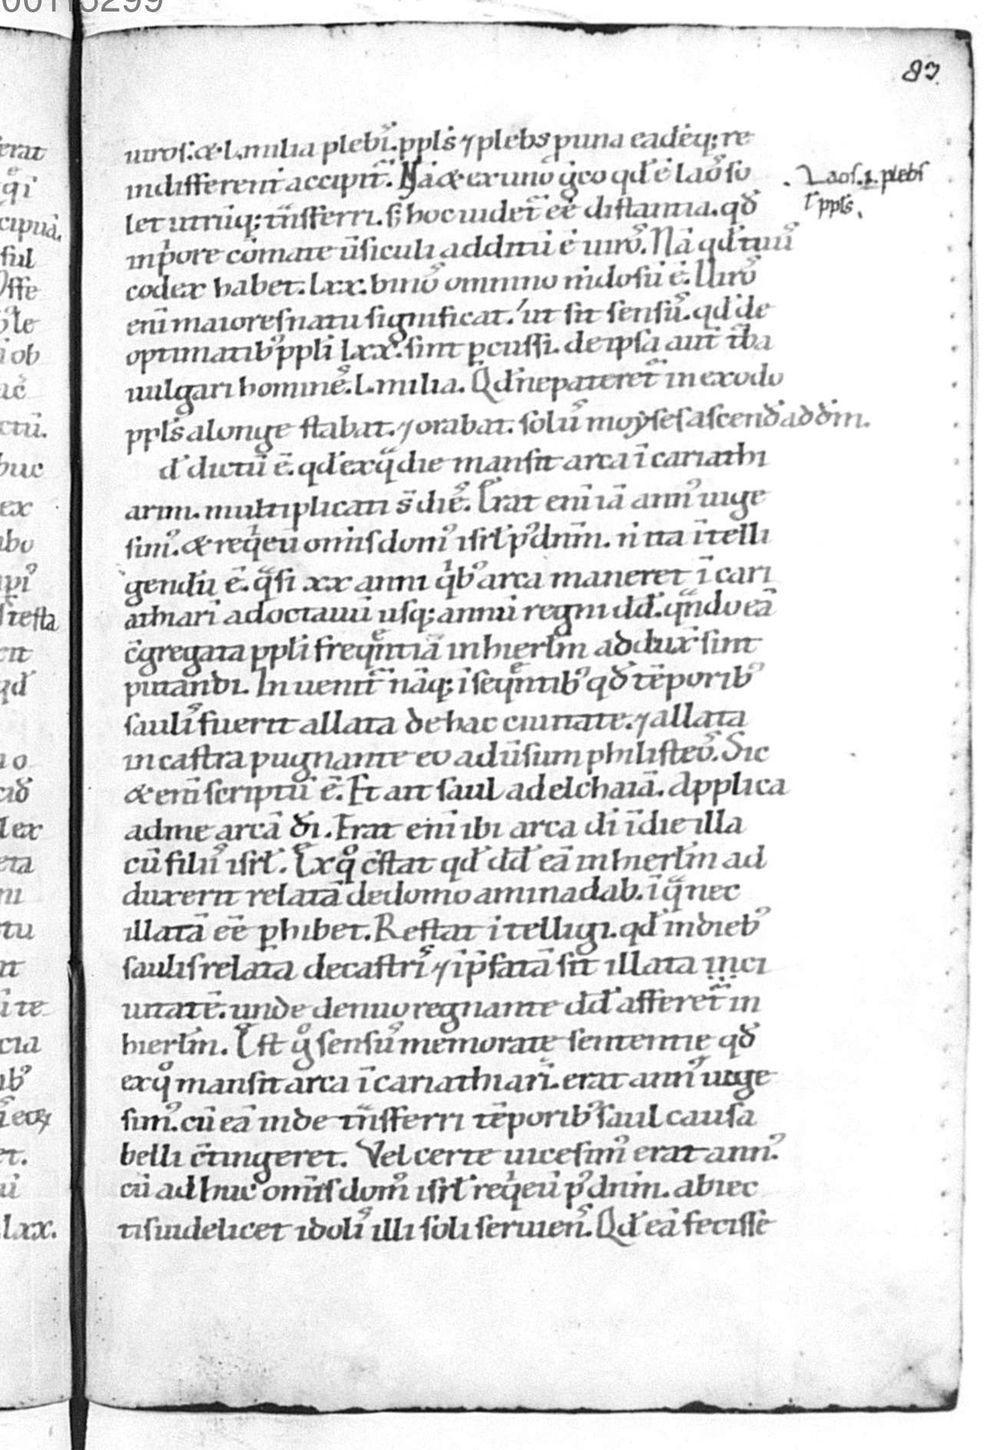 83
uiros. & .L. milia plebis. ppl's ⁊ plebs p una eadēq; re
indifferent̄ accipit̄. Nā & ex uno gͦco qd̄ ē laos so
let utrūq; tͣnsferri. sꝫ hoc uidet̄ eē distantia. qd̄
in pͥore cōmate ūsiculi additū ē uiros. Nā qd̄ tuus
codex habet. lxx. binos omnino m̄dosū ē. Uiros
eni maiores natu significat. ut sit sensus. qd̄ de
optimatibꝰ ppli lxx. sint pcussi. de ipsa aut̄ t̄ba
uulgari hominēs. L. milia. Qd̄ ne pateret̄ in exodo
ppl's a longe stabat. ⁊ orabat. solus moyses ascend̄ ad dm̄.
d̄ dictū ē. qd̄ ex qͣ die mansit arca ī cariathi
arim. multiplicati s̄ dies. Erat eni iā annꝰ uige
simꝰ. & reqͥeuͥ omīs domꝰ isrl̄ pꝰ dnm̄. ń ita ītelli
gendū ē. qͣsi xx anni qͥbꝰ arca maneret ī cari
athiari ad octauū usq; annū regni dd̄. qn̄do eā
c̄gregata ppli freqn̄tiā in hierlm̄ addux̄ sint
putandi. Inuenit̄ nāq; ī seqn̄tibꝰ qd̄ tēporibꝰ
saulis fuerit allata de hac ciuitate. ⁊ allata
in castra pugnante eo aduͥsum philisteos. Sic
& eni scriptū ē. Et ait saul ad elchaiā. Applica
ad me arcā di. Erat eni ibi arca di ī die illa
cū filiis isrl̄. Ex qͦ c̄stat qd̄ dd̄ eā in hierlm̄ ad
duxerit relatā de domo aminadab. ī qͣ nec
illatā eē phibet. Restat ītelligi. qd̄ in diebꝰ
saulis relata de castris ⁊ ip̄satā sit illata in ci
uitatē. unde denuo regnante dd̄ afferet̄ in
hierlm̄. Est gͦ sensus memorate sententie qd̄
ex qͦ mansit arca ī cariathiari. erat annꝰ uige
simꝰ. cū eā inde tͣnsferri tēporibꝰ saul causa
belli c̄tingeret. Vel certe uicesimꝰ erat annꝰ.
cū adhuc omīs domꝰ isrl̄ reqͥeuͥ pꝰ dnm̄. abiec
tis uidelicet idolis illi soli seruiens. Qd̄ eā fecisse
Laos. ı. plebs
ł ppl's.